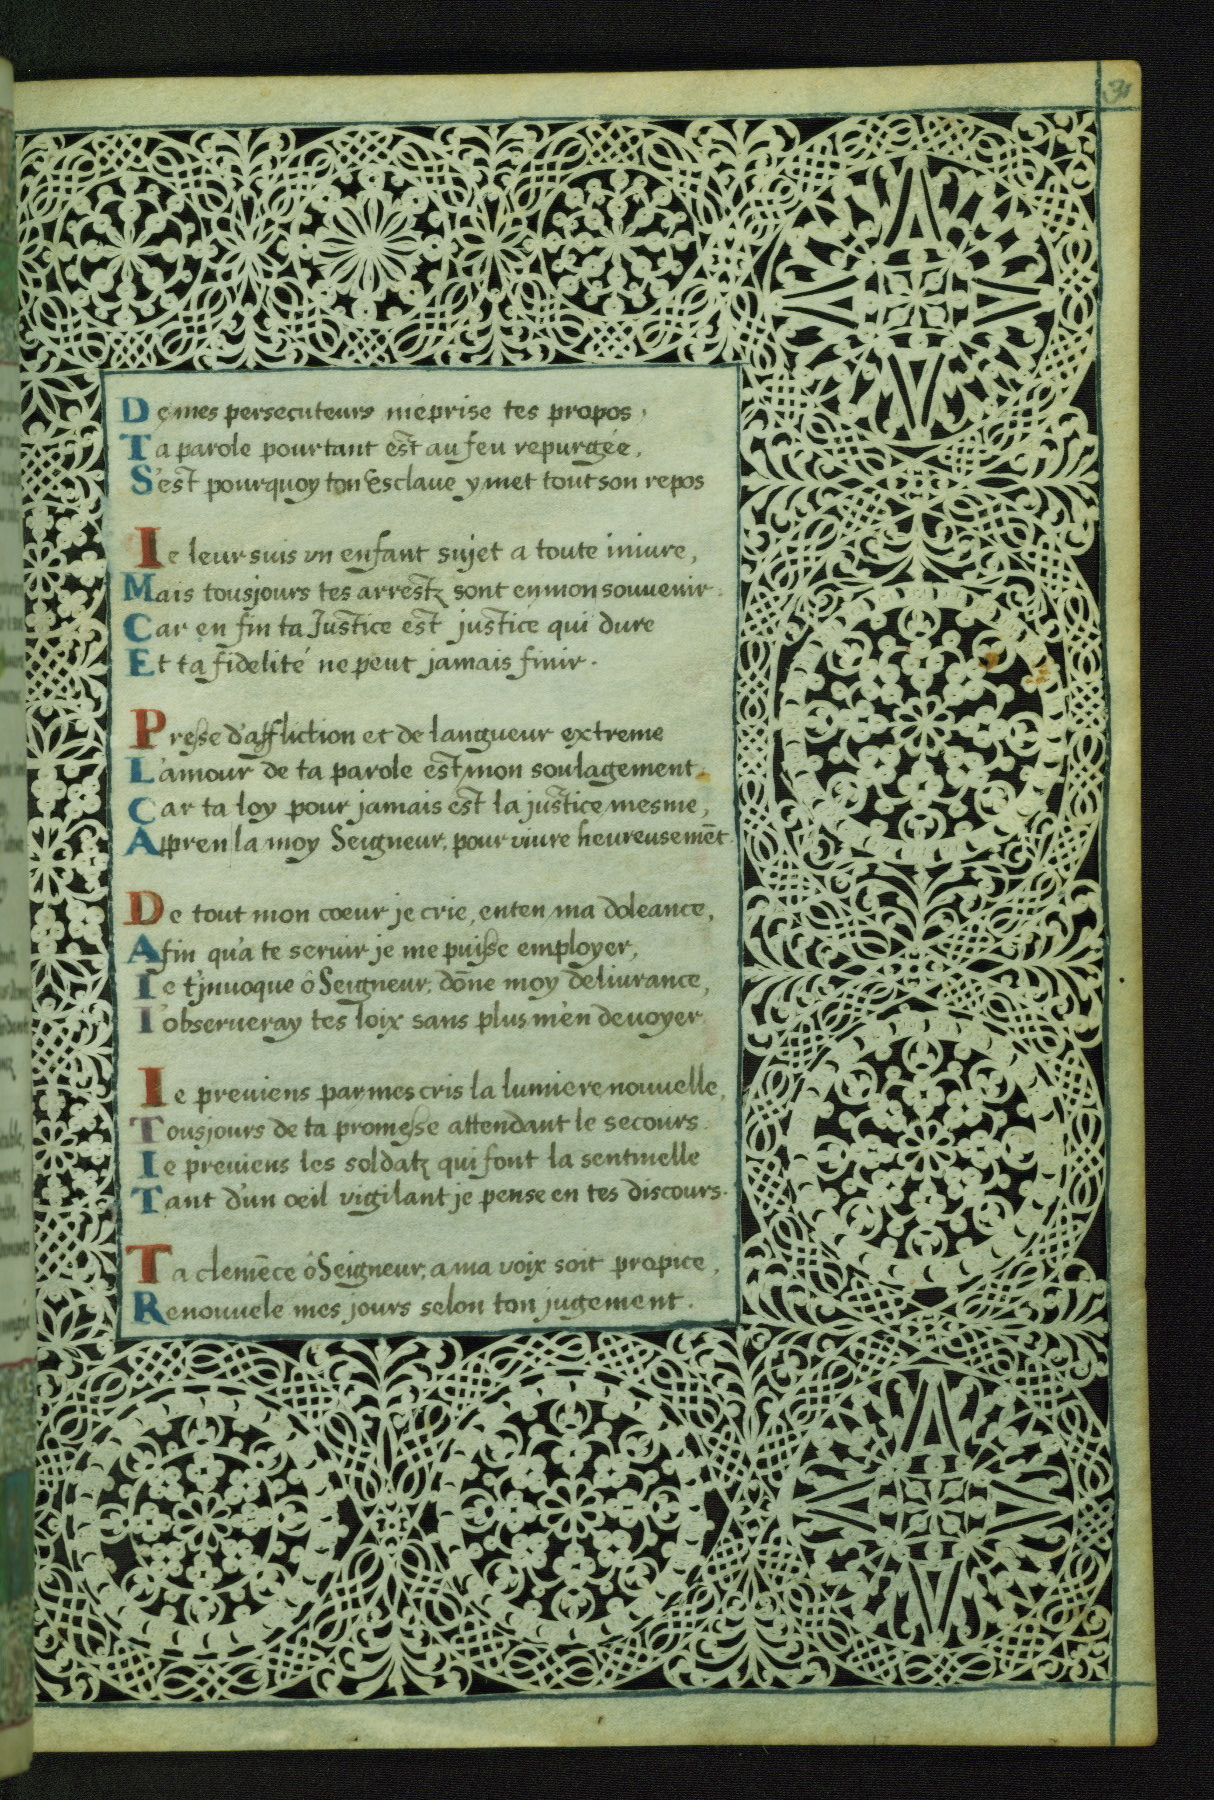 De mes persecuteurs méprise tes propos,
Ta parole pourtant est au feu repurgée,
S'est pourquoy ton Esclave y met tout son repos
Ie leur suis vn enfant sujet a toute iniure,
Mais tousjours tes arrestz sont en mon souuenir.
Car en fin ta Justice est justice qui dure
Et ta fidelité ne peut jamais finir.
Presse d'affliction et de langueur extreme
L'amour de ta parole est mon soulagement.
Car ta loy pour jamais est la justice mesme,
Appren la moy Seigneur, pour viure heureusemēt.
De tout mon coeur je crie, enten ma doleance,
Afin qu'a te seruir je me puisse employer,
Ie t'jnuoque ô Seigneur, dōne moy deliurance,
I'obserueray tes loix sans plus m'en deuoyer.
Ie preuiens par mes cris la lumiere nouuelle,
Tousjours de ta promesse attendant le secours.
Ie preuiens les soldatz qui font la sentinelle
Tant d'un oeil vigilant je pense en tes discours.
Ta clemēce ô Seigneur, a ma voix soit propice,
Renouuele mes jours selon ton jugement.